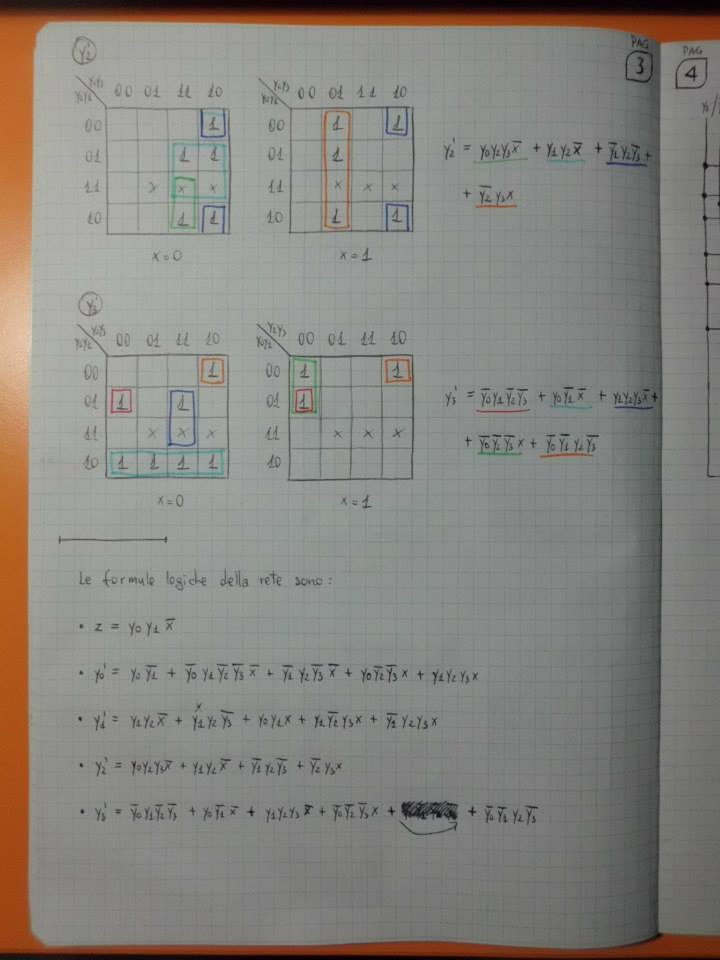 y₂'
PAG 3
PAG 4
y₂y₃ 00 01 11 10
y₀y₁
00 1
01 1 1
11 x x x
10 1 1
x=0
y₂y₃ 00 01 11 10
y₀y₁
00 1 1
01 1
11 x x x
10 1 1
x=1
y₂' = y₀y₂y₃x̅ + y₁y₂x̅ + y̅₁y₂y̅₃ +
+ y̅₂y₃x
y₃'
y₂y₃ 00 01 11 10
y₀y₁
00 1
01 1 1
11 x x x
10 1 1 1 1
x=0
y₂y₃ 00 01 11 10
y₀y₁
00 1 1
01 1
11 x x x
10
x=1
y₃' = y̅₀y₁y̅₂y̅₃ + y₀y̅₁x̅ + y₁y₂y₃x̅ +
+ y̅₀y̅₂y̅₃x + y̅₀y̅₁y₂y̅₃
Le formule logiche della rete sono:
• z = y₀y₁x̅
• y₀' = y₀y̅₁ + y̅₀y₁y̅₂y̅₃x̅ + y̅₁y₂y̅₃x̅ + y₀y̅₂y̅₃x + y₁y₂y₃x
• y₁' = y₁y₂x̅ + y₁y₂y̅₃ + y₀y₁x + y₁y̅₂y₃x + y̅₁y₂y₃x
• y₂' = y₀y₂y₃x̅ + y₁y₂x̅ + y̅₁y₂y̅₃ + y̅₂y₃x
• y₃' = y̅₀y₁y̅₂y̅₃ + y₀y̅₁x̅ + y₁y₂y₃x̅ + y̅₀y̅₂y̅₃x + + y̅₀y̅₁y₂y̅₃